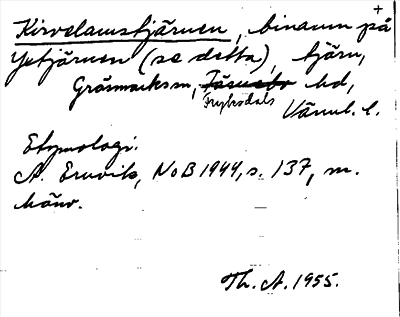 +
Kirvelamstjärnen, binamn på
Yttjärnen (se detta), tjärn,
Gräsmarks sn, Jösse hd,
Fryksdals
Värml. l.
Etymologi:
A. Ernvik, NoB 1944, s. 137, m.
hänv.
Th. A. 1955.